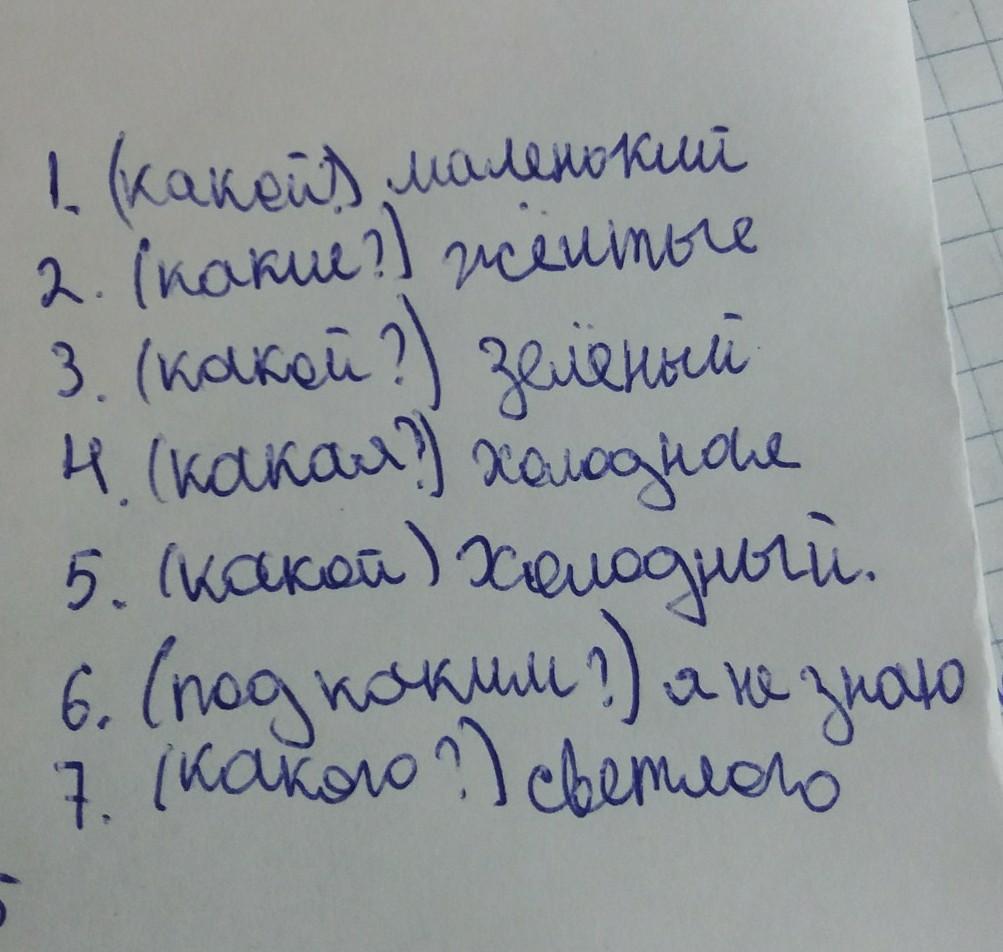 1. (какой?) маленький
2. (какие?) жёлтые
3. (какой?) зелёный
4. (какая?) холодная
5. (какой) холодный.
6. (под каким?) я не знаю
7. (какого?) светлого